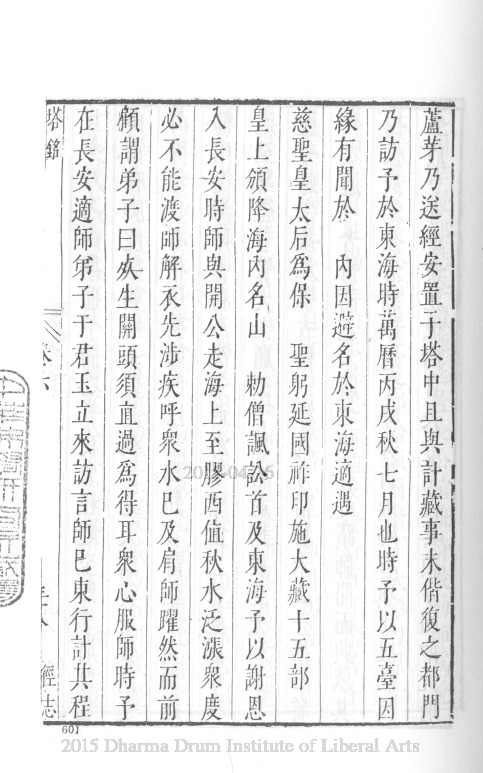 蘆芽乃送經安置于塔中且與計藏事未偕復之都門
乃訪予於東海時萬曆丙戌秋七月也時予以五臺因
緣有聞於　內因避名於東海適遇
慈聖皇太后為保　聖躬延國祚印施大藏十五部
皇上頒降海內名山　勅僧諷誦首及東海予以謝恩
入長安時師與開公走海上至膠西值秋水泛漲眾度
必不能渡師解衣先涉疾呼眾水已及肩師躍然而前
顧謂弟子曰死生關頭須直過為得耳眾心服師時予
在長安適師弟子于君玉立來訪言師已東行計其程
塔銘
卷六
經志
601
2015 Dharma Drum Institute of Liberal Arts